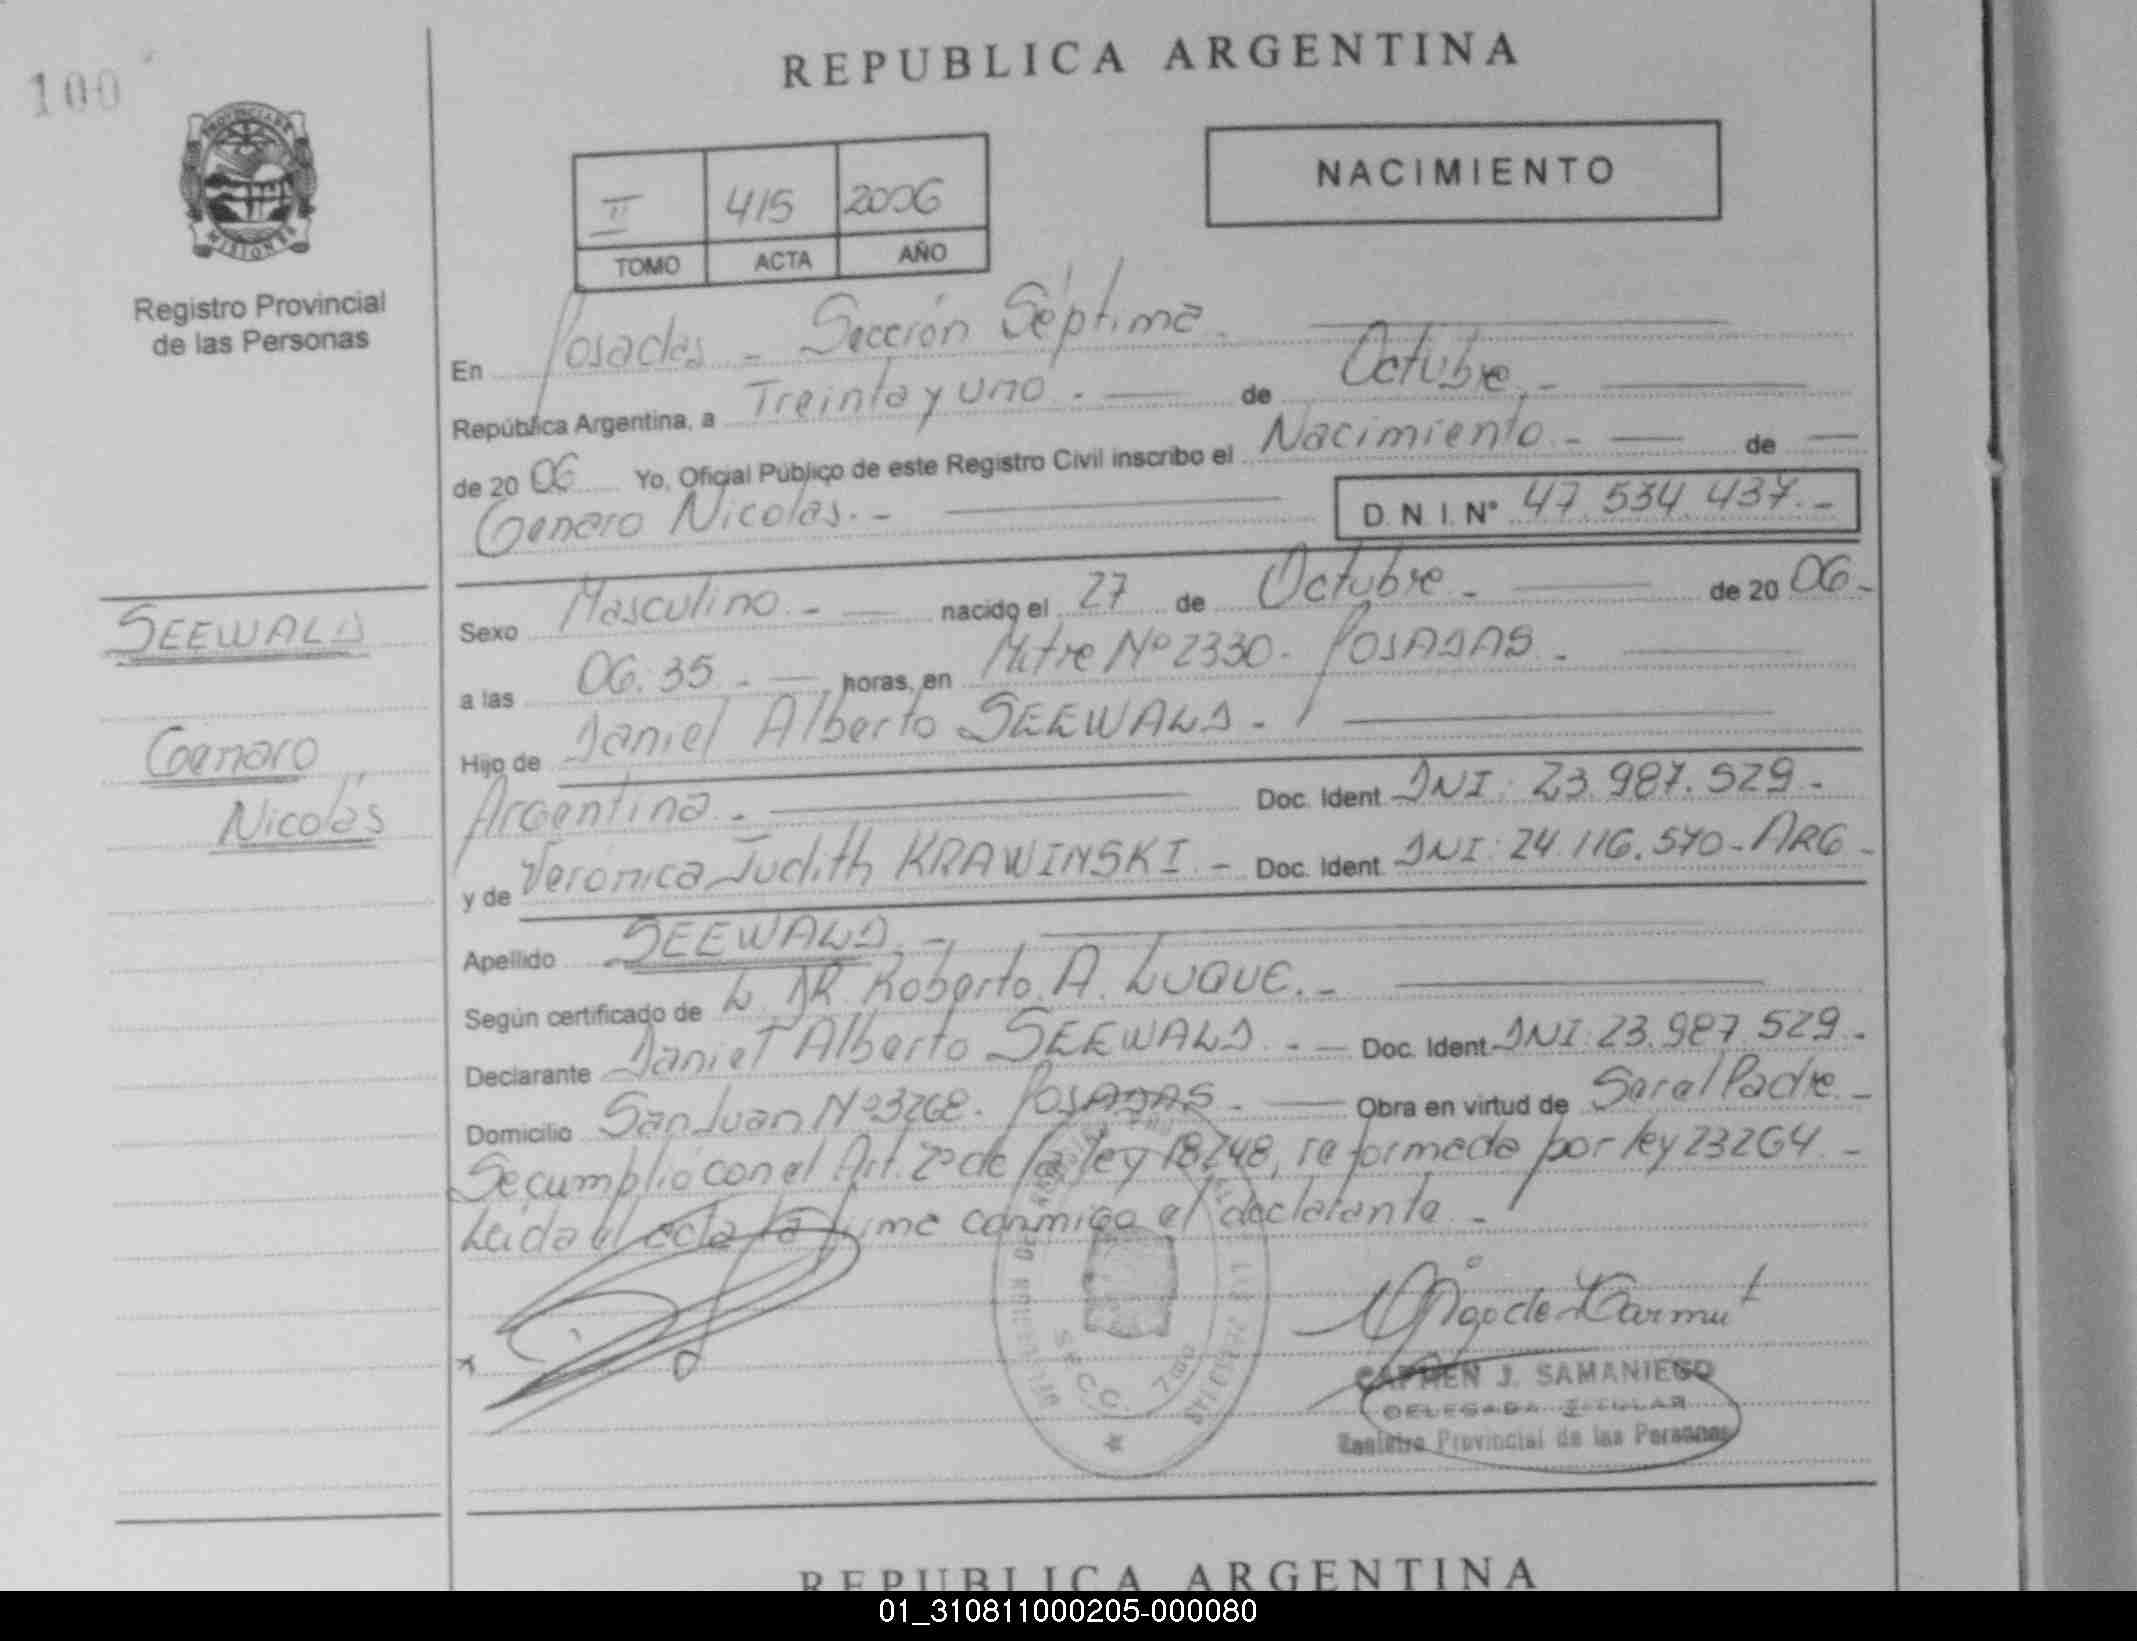 REPUBLICA ARGENTINA
100
PROVINCIA DE
MISIONES
Registro Provincial
de las Personas
II 415 2006
TOMO ACTA AÑO
NACIMIENTO
En Posadas - Sección Séptima.
República Argentina, a Treinta y uno. - de Octubre. -
de 20 06 Yo, Oficial Público de este Registro Civil inscribo el Nacimiento. - de
Genaro Nicolás. - D. N. I. N° 47.534.437. -
SEEWALD
Genaro
Nicolás
Sexo Masculino. - nacido el 27 de Octubre - de 20 06 -
a las 06.35. - horas, en Mitre Nº 2330. POSADAS. -
Hijo de Daniel Alberto SEEWALD. -
Argentina. - Doc. Ident. DNI: 23.987.529. -
y de Verónica Judith KRAWINSKI. - Doc. Ident. DNI: 24.116.570 - ARG -
Apellido SEEWALD. -
Según certificado de L. DR. Roberto A. LUQUE. -
Declarante Daniel Alberto SEEWALD. - Doc. Ident. DNI: 23.987.529. -
Domicilio San Juan Nº 3268. POSADAS - Obra en virtud de Ser el Padre. -
Se cumplió con el Art. 2º de la ley 18248, reformada por ley 23264. -
Leída el acta la firma conmigo el declarante. -
SECC. 7ma
CARMEN J. SAMANIEGO
DELEGADA TITULAR
Registro Provincial de las Personas
REPUBLICA ARGENTINA
01_310811000205-000080